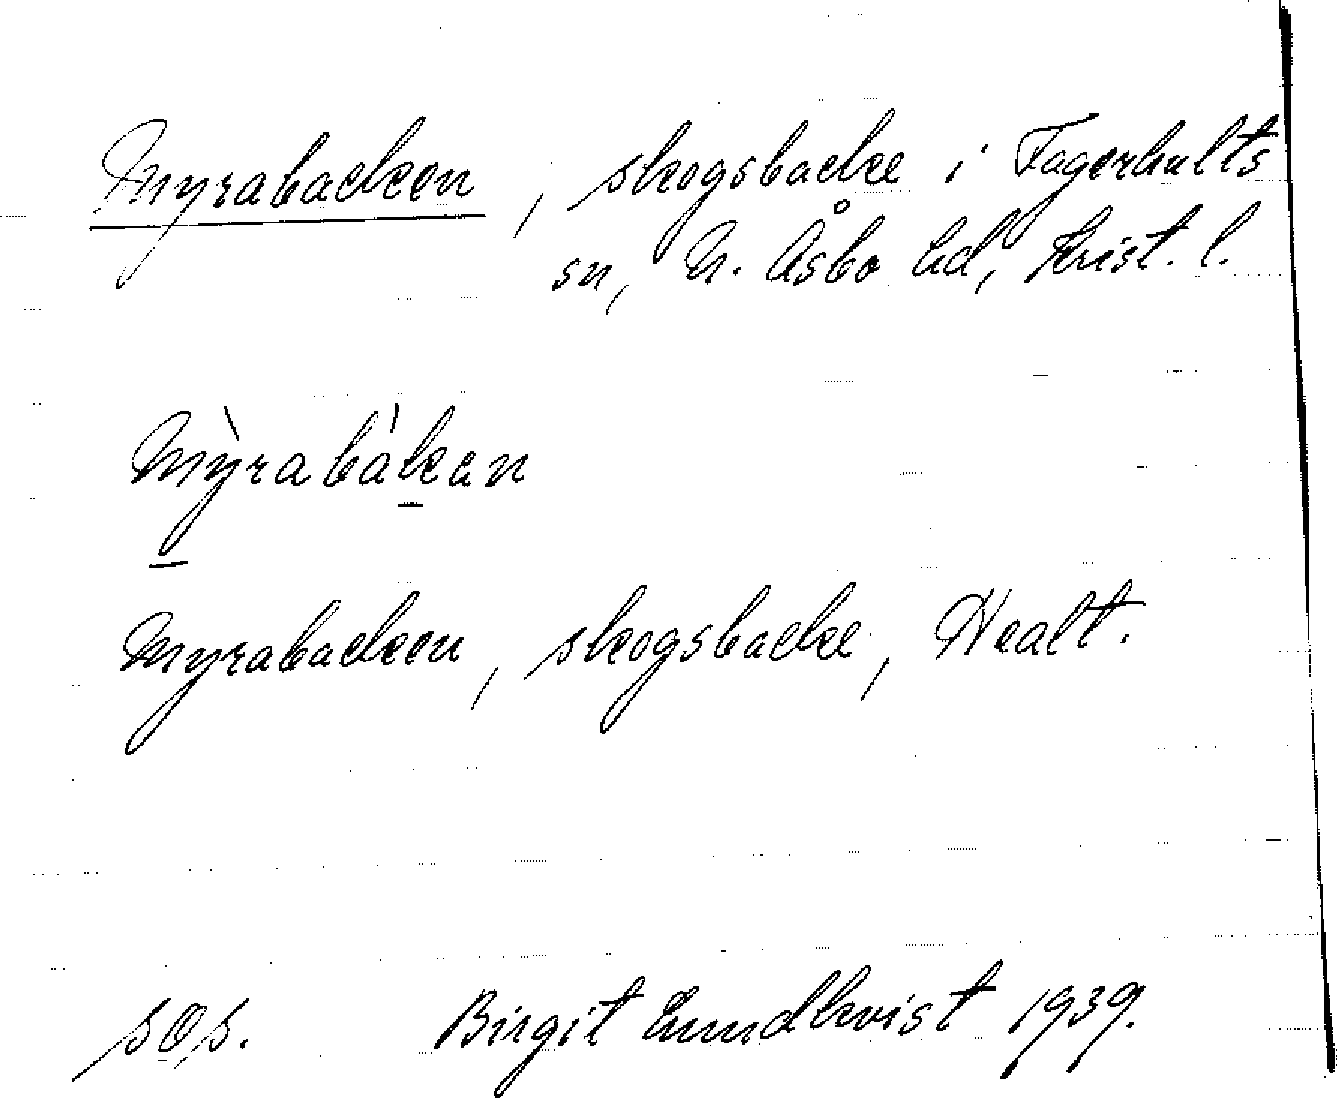 Myrabacken, skogsbacke i Fagerhults
sn, N. Åsbo hd, Krist. l.
Mỳrabàkan
Myrabacken, skogsbacke,
Birgit Lundkvist 1939.